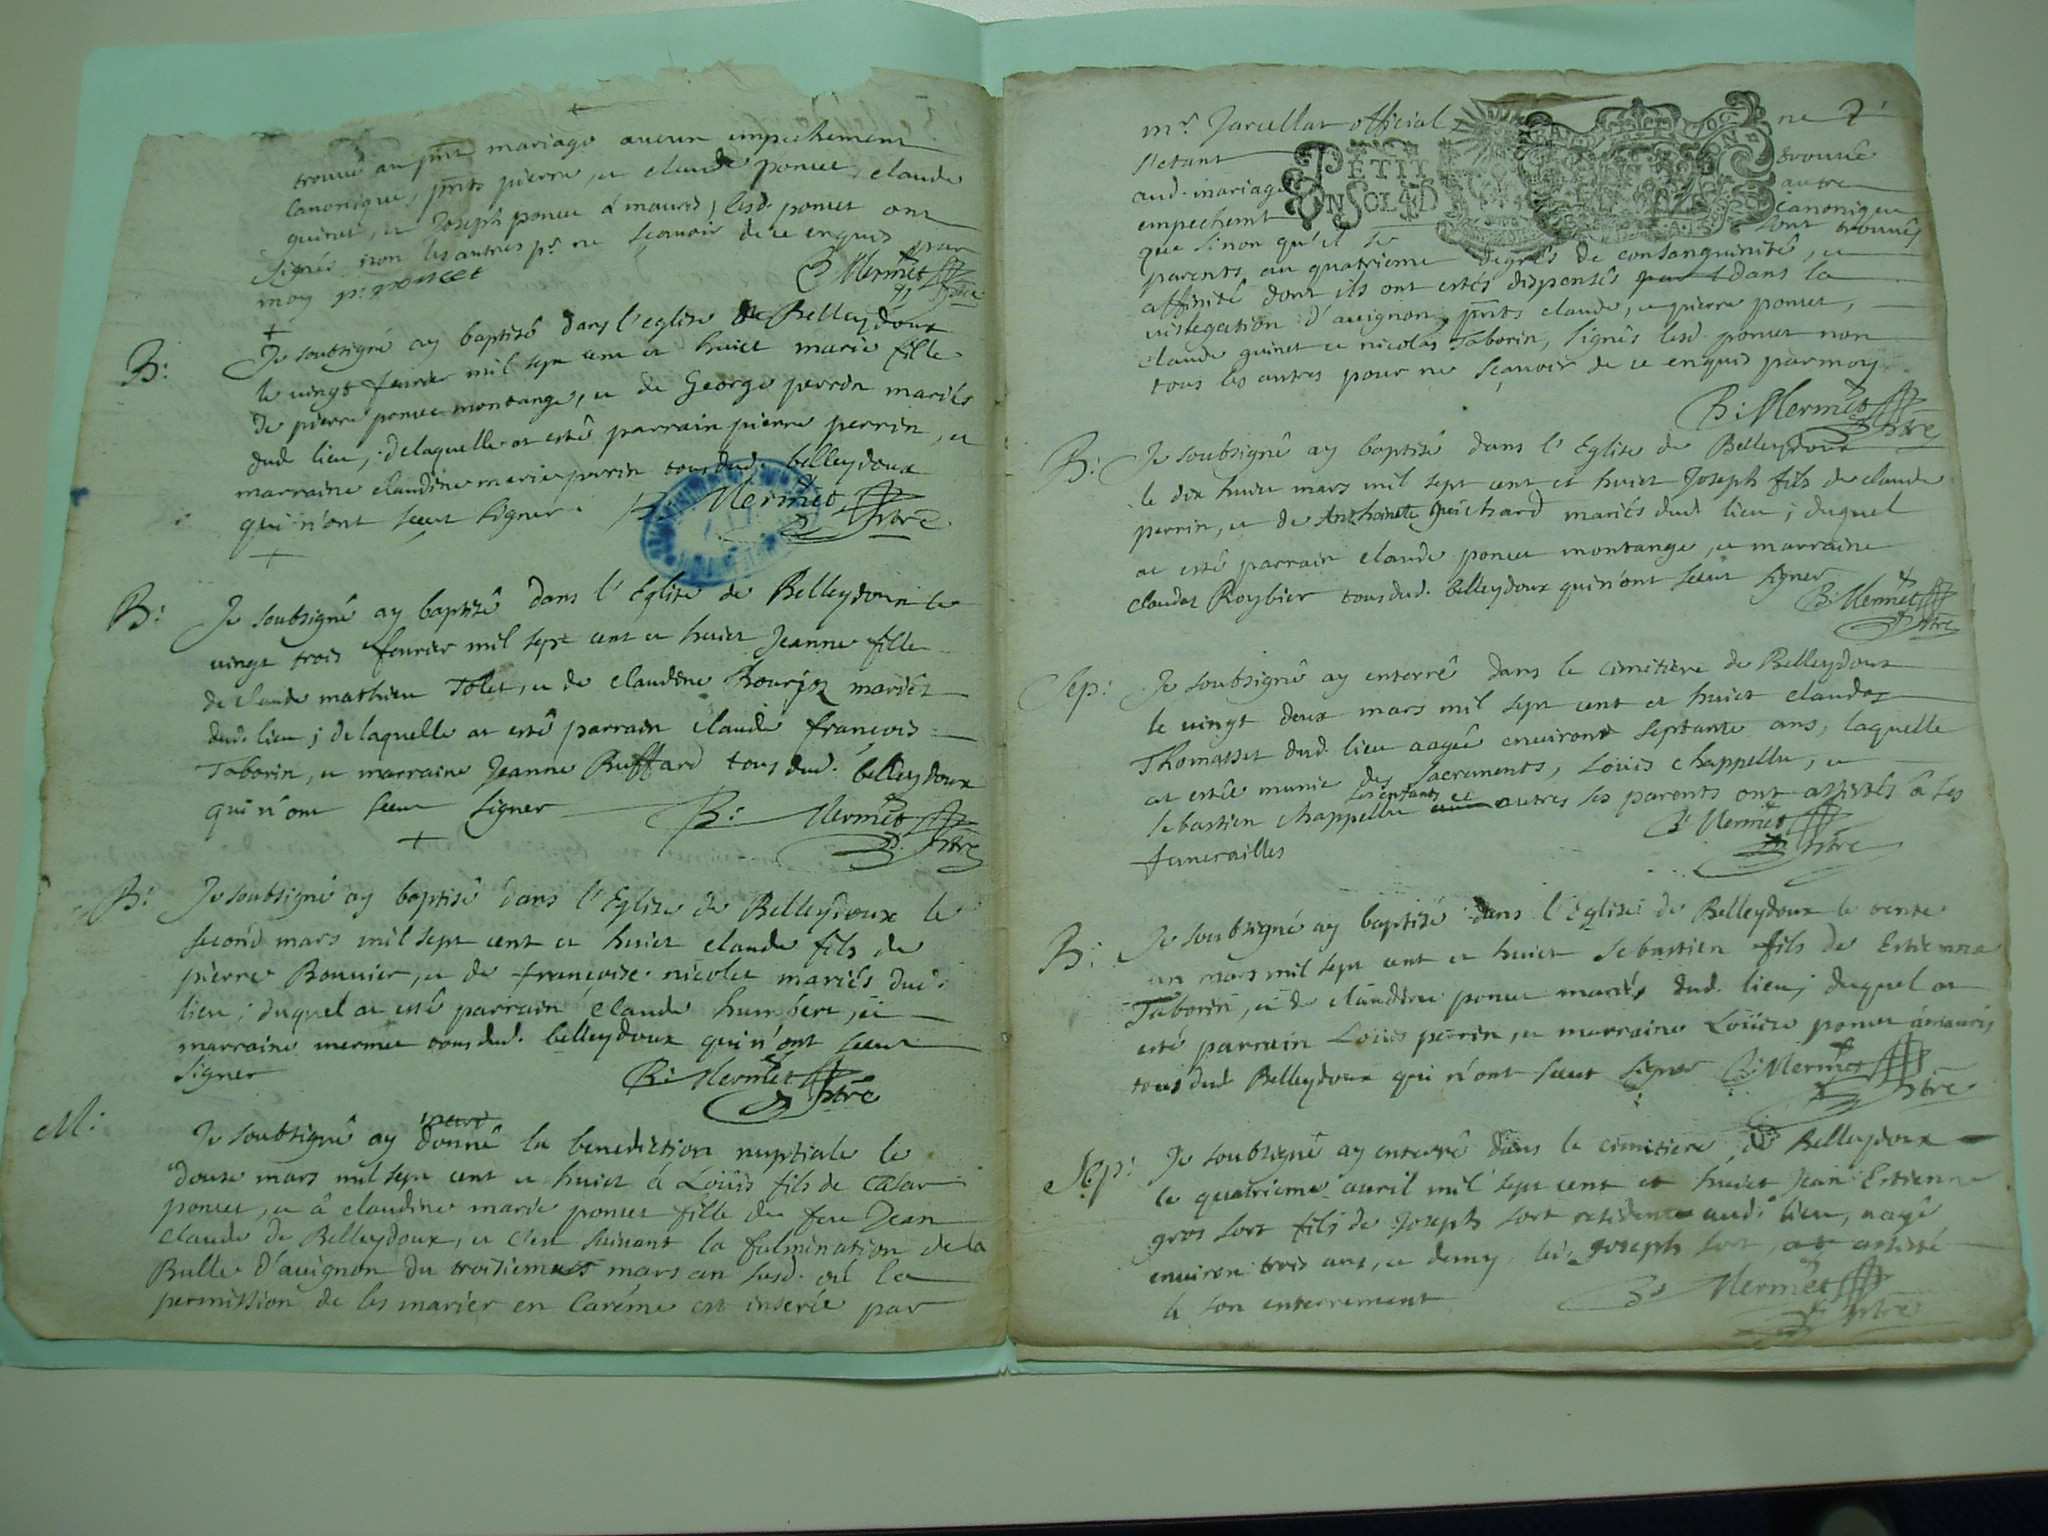 trouvé au pnt mariage aucun empechement
canonique, pnts pierre, et claude poncet, claude
guinet, et Joseph poncet à mauris, lesd. poncet ont
signés non les autres pr. ne sçavoir de ce enquis par
moy p: poncet B Mermet
ptre
B: Je soubsigné ay baptisé dans l'eglise de Belleydoux
le vingt feuvrier mil sept cent et huict marie fille
de pierre poncet montange, et de George perrin mariés
dud. lieu, de laquelle at esté parrain pierre perrin, et
marraine claudine marie perrin tous dud. belleydoux
qui n'ont sceut signer. B: Mermet ptre
B: Je soubsigné ay baptisé dans l'Eglise de Belleydoux le
vingt trois feuvrier mil sept cent et huict Jeanne fille
de claude mathieu Tolet, et de claudine Bourjoz mariés
dud. lieu; de laquelle at esté parrain claude françois
Taborin, et marraine Jeanne Buffard tous dud. belleydoux
qui n'ont sceut signer B: Mermet
ptre
B: Je soubsigné ay baptisé dans l'Eglise de Belleydoux le
second mars mil sept cent et huict claude fils de
pierre Bouvier, et de françoise nicolet mariés dud.
lieu; duquel at esté parrain claude humbert, et
marraine mermet tous dud. belleydoux qui n'ont sceut
signer B: Mermet
ptre
M: Je soubsigné ay donné la benediction nuptiale le
douze mars mil sept cent et huict à Loüis fils de Cæsar
poncet, et à claudine marie poncet fille de feu Jean
claude de Belleydoux, et c'est suivant la fulmination de la
Bulle d'avignon du troisieme mars an susd. où la
permission de les marier en Caréme est inserée par
mr. Jarcellat official ne 2
s'etant trouvée
PETIT
EN SOL 4 D
aud. mariage autre
empechemt canonique
que sinon qu'il se sont trouvés
parents au quatrieme degrés de consanguinité, et
affinité dont ils ont estés dispensés dans la
vislegation d'avignon, pnts claude, et pierre poncet,
claude guinet et nicolas Taborin, signés lesd. poncet non
tous les autres pour ne sçavoir de ce enquis par moy
B: Mermet
ptre
B: Je soubsigné ay baptisé dans l'Eglise de Belleydoux
le dix huict mars mil sept cent et huict Joseph fils de claude
perrin, et de Anthoinete guichard mariés dud. lieu; duquel
at esté parrain claude poncet montange, et marraine
claudaz Roybier tous dud. belleydoux qui n'ont sceut signer
B: Mermet
ptre
Sep: Je soubsigné ay enterré dans le cimitiere de Belleydoux
le vingt deux mars mil sept cent et huict claudaz
Thomasset dud. lieu aagée environt septante ans, laquelle
at estée munie des sacrements, Loüis chappellu, et
les enfants et
sebastien chappellu autres ses parents ont assistés à ses
funerailles B Mermet
ptre
B: Je soubsigné ay baptisé dans l'Eglise de Belleydoux le trente
un mars mil sept cent et huict Sebastien fils de Estienne
Taborin, et de claudine poncet mariés dud. lieu; duquel at
esté parrain Loüis perrin, et marraine Loüise poncet à mauris
tous dud. Belleydoux qui n'ont sceut signer B: Mermet
ptre
Sep: Je soubsigné ay enterré dans le cimitiere de Belleydoux
le quatrieme avril mil sept cent et huict Jean Estienne
gros sort fils de Joseph sort residents aud. lieu, aagé
environ trois ans, et demy, led. Joseph sort, at assisté
à son enterrement B: Mermet
ptre